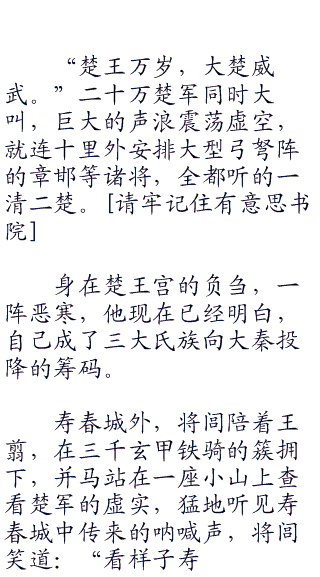 “楚王万岁，大楚威
武。”二十万楚军同时大
叫，巨大的声浪震荡虚空，
就连十里外安排大型弓弩阵
的章邯等诸将，全都听的一
清二楚。[请牢记住有意思书
院]
身在楚王宫的负刍，一
阵恶寒，他现在已经明白，
自己成了三大氏族向大秦投
降的筹码。
寿春城外，将闾陪着王
翦，在三千玄甲铁骑的簇拥
下，并马站在一座小山上查
看楚军的虚实，猛地听见寿
春城中传来的呐喊声，将闾
笑道：“看样子寿